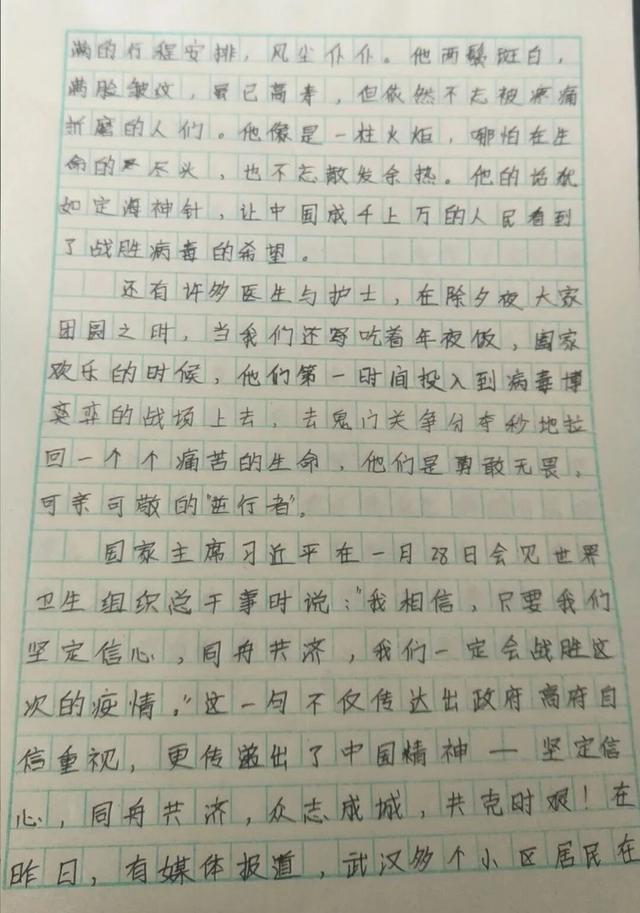 满的行程安排，风尘仆仆。他两鬓斑白，
满脸皱纹，虽已高寿，但依然不忘被疼痛
折磨的人们。他像是一柱火炬，哪怕在生
命的尽头，也不忘散发余热。他的话犹
如定海神针，让中国成千上万的人民看到
了战胜病毒的希望。
还有许多医生与护士，在除夕夜大家
团圆之时，当我们还写吃着年夜饭，阖家
欢乐的时候，他们第一时间投入到病毒博
奕弈的战场上去，去鬼门关争分夺秒地拉
回一个个痛苦的生命，他们是勇敢无畏，
可亲可敬的"逆行者"。
国家主席习近平在一月28日会见世界
卫生组织总干事时说："我相信，只要我们
坚定信心，同舟共济，我们一定会战胜这
次的疫情。"这一句不仅传达出政府高府自
信重视，更传递出了中国精神——坚定信
心，同舟共济，众志成城，共克时艰！在
昨日，有媒体报道，武汉多个小区居民在